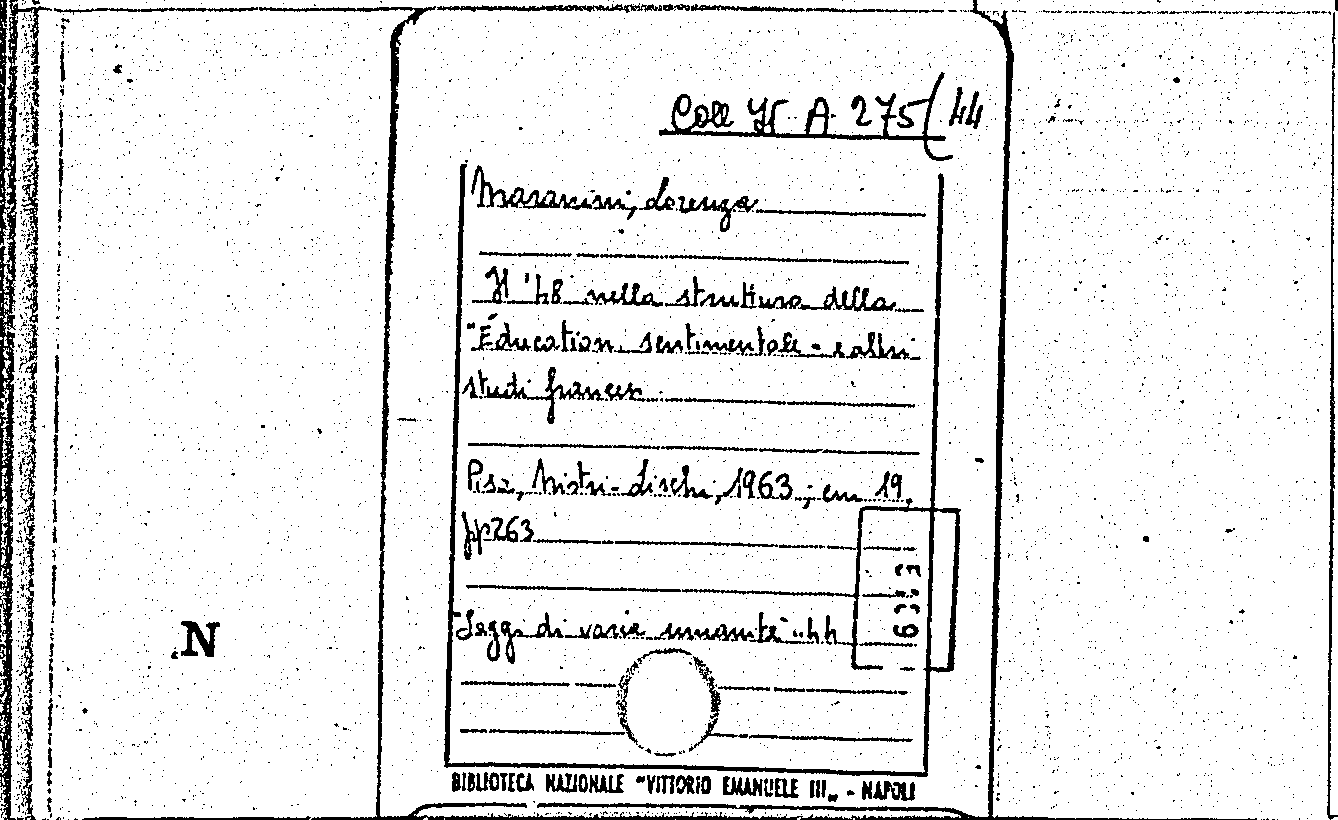 Coll It. A. 275/44
Maranini, Lorenza
Il '48 nella struttura della
"Éducation sentimentale - e altri
studi francesi
Pisa, Nistri-Lischi, 1963; cm 19,
pp 263
"Saggi di varia umanità" .. 44
N
BIBLIOTECA NAZIONALE "VITTORIO EMANUELE III„ - NAPOLI